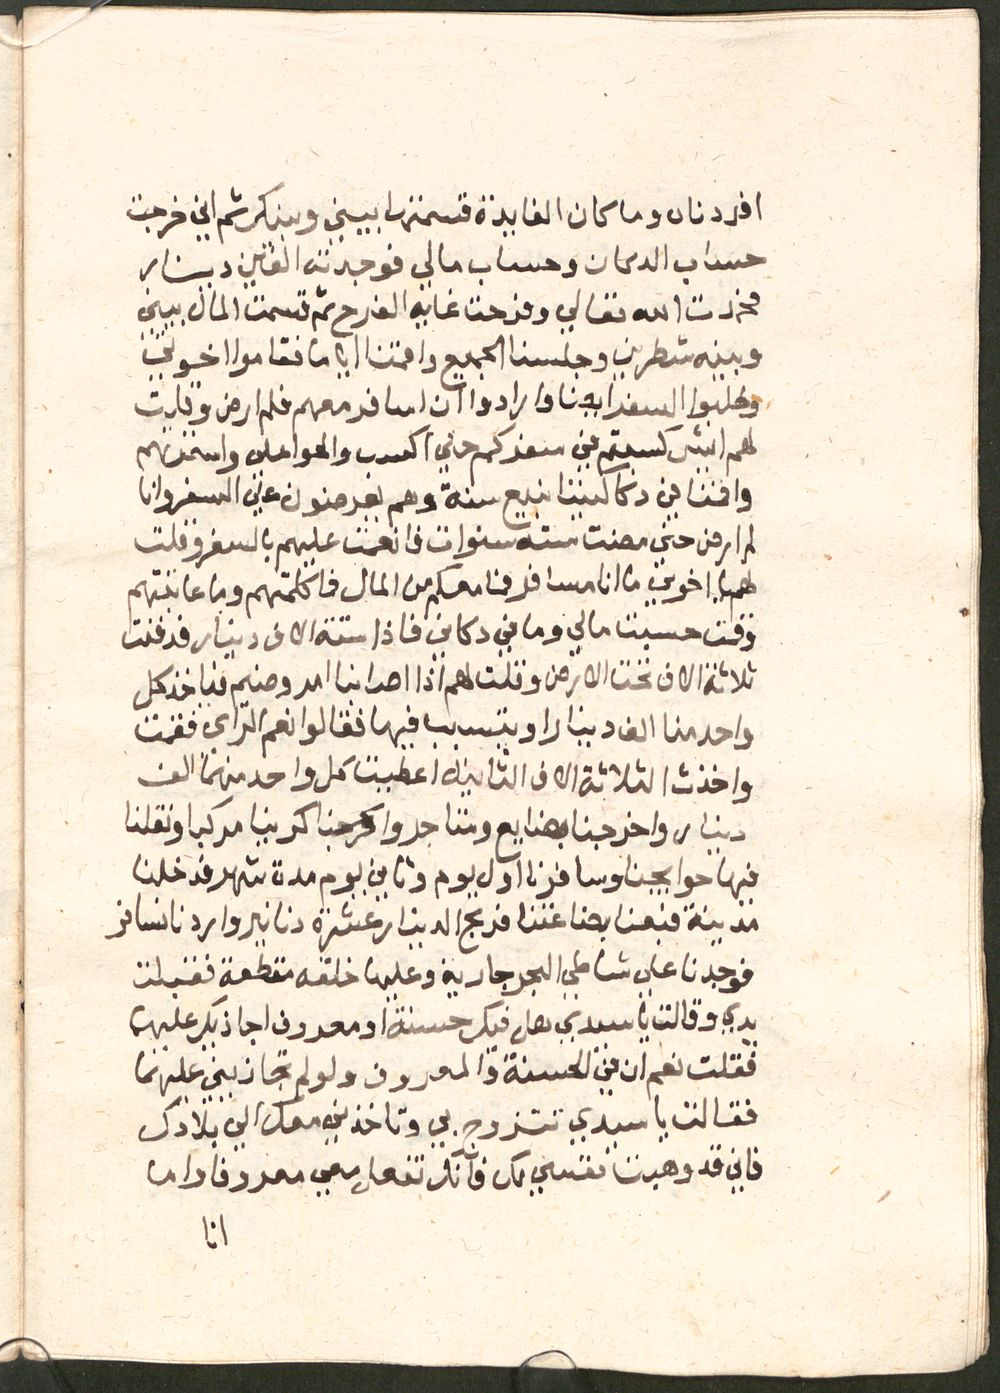 افردناه وما كان الفايدة قسمتها بيني وبينك ثم اني خرجت
حساب الدكان وحساب مالي فوجدته الفاين دينار
فحمدت الله تعالي وفرحت غاية الفرح ثم قسمت المال بيني
وبينه شطرين وجلسنا الجميع واقمنا اياما فقاموا اخوتي
وطلبوا السفر ايضا وارادوا ان اسافر معهم فلم ارض وقلت
لهم ايش كسبتم في سفركم حتي اكسب والحوا علي واستمريتهم
واقمنا في دكاكيننا نبيع سنة وهم يعرضون علي السفر وانا
لم ارض حتي مضت ستة سنوات فانعمت عليهم بالسفر وقلت
لهم يا اخوتي ها انا مسافر فما معكم من المال فاكلمتهم وما عاتبتهم
وقمت حسبت مالي وما في دكاني فاذا ستة الاف دينار فدفنت
ثلاثة الاف تحت الارض وقلت لهم اذا اصابنا امر وضيم فياخذ كل
واحد منا الف دينارا ويتسبب فيها فقالوا نعم الراي فقمت
واخذت الثلاثة الاف الثانية اعطيت كل واحد منهما الف
دينار واخرجنا بضايع ومتاجر واكرينا مركبا ونقلنا
فيها حوايجنا وسافرنا اول يوم وثاني يوم مدة شهر فدخلنا
مدينة فبعنا بضاعتنا فربح الدينار عشرة دنانير واردنا نسافر
فوجدنا علي شاطي البحر جارية وعليها خلقه مقطعة فقبلت
يدي وقالت يا سيدي هل فيك حسنة او معروف اجازيك عليهما
فقلت نعم ان في الحسنة والمعروف ولو لم تجازيني عليهما
فقالت يا سيدي تتزوج بي وتاخذني معك الي بلادك
فاني قد وهبت نفسي لك فانك تفعل معي معروفا واما
انا